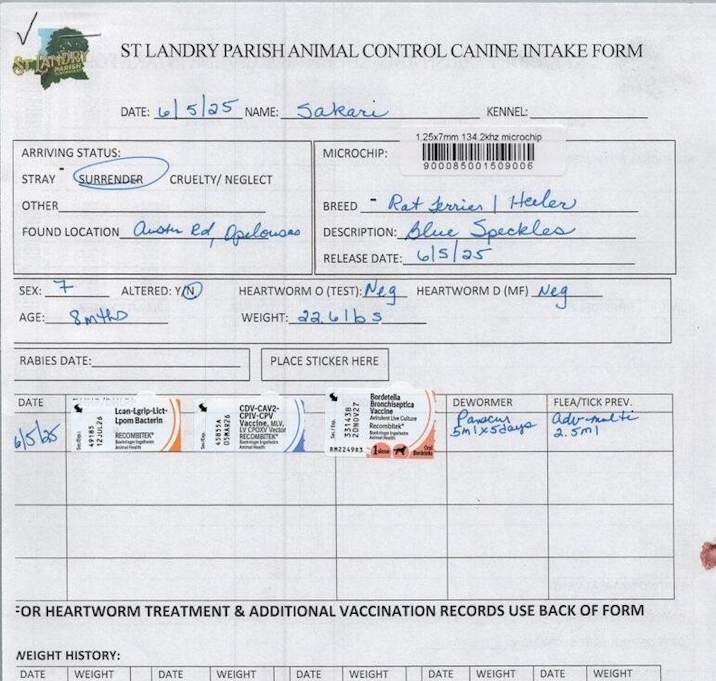 ST LANDRY PARISH
ST LANDRY PARISH ANIMAL CONTROL CANINE INTAKE FORM
DATE: 6/5/25 NAME: Sakari KENNEL:
ARRIVING STATUS:
STRAY SURRENDER CRUELTY/ NEGLECT
OTHER
FOUND LOCATION Austin Rd, Opelousas
1.25x7mm 134.2khz microchip
MICROCHIP:
900085001509006
BREED - Rat Terrier / Heeler
DESCRIPTION: Blue Speckles
RELEASE DATE: 6/5/25
SEX: F ALTERED: Y/N HEARTWORM O (TEST): Neg HEARTWORM D (MF) Neg
AGE: 8mths WEIGHT: 22.6lbs
RABIES DATE: PLACE STICKER HERE
DATE DEWORMER FLEA/TICK PREV.
6/5/25
Lcan-Lgrip-Lict-
Lpom Bacterin
RECOMBITEK
Boehringer Ingelheim
Animal Health
49185
12JUL26
CDV-CAV2-
CPIV-CPV
Vaccine, MLV,
LV CPOXV Vector
RECOMBITEK
Boehringer Ingelheim
Animal Health
45855A
05MAR26
Bordetella
Bronchiseptica
Vaccine
Avirulent Live Culture
Recombitek
Boehringer Ingelheim
Animal Health
331438
20NOV27
RM2249R3
1 dose
Oral
Bordetella
Panacur
5ml x 5days
adv-multi
2.5ml
FOR HEARTWORM TREATMENT & ADDITIONAL VACCINATION RECORDS USE BACK OF FORM
WEIGHT HISTORY:
DATE WEIGHT DATE WEIGHT DATE WEIGHT DATE WEIGHT DATE WEIGHT